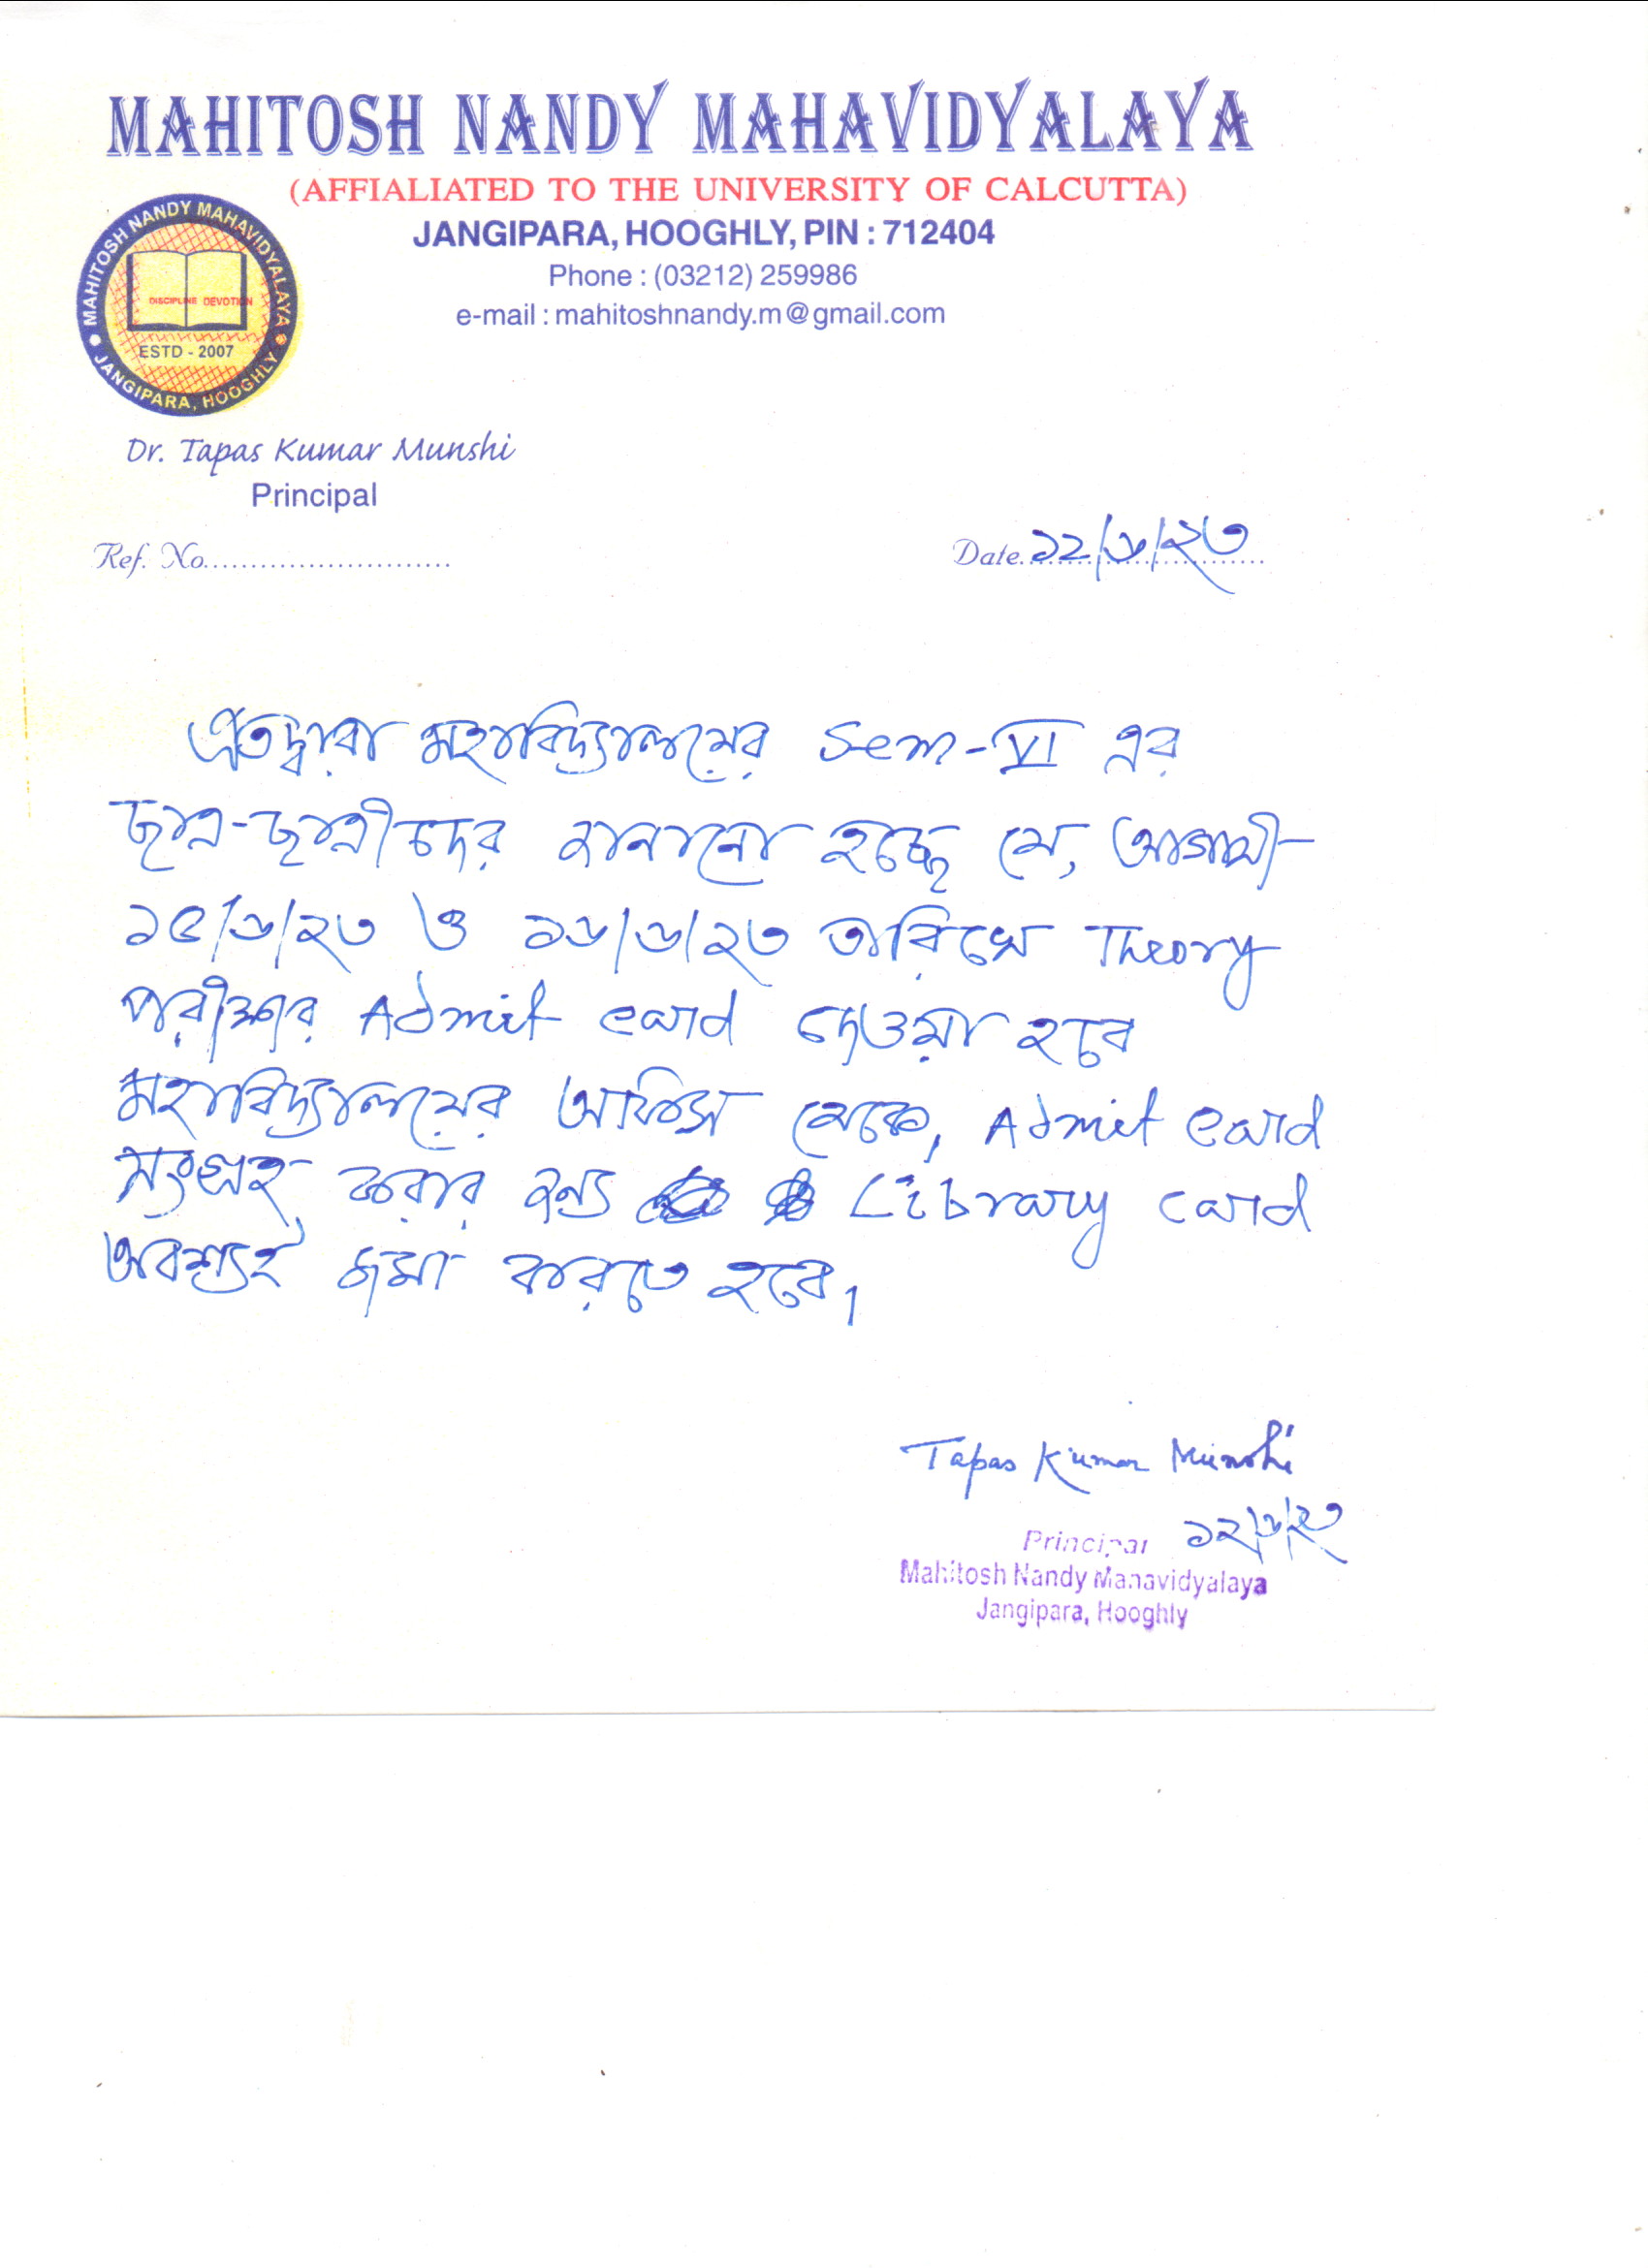 MAHITOSH NANDY MAHAVIDYALAYA
(AFFIALIATED TO THE UNIVERSITY OF CALCUTTA)
JANGIPARA, HOOGHLY, PIN : 712404
Phone : (03212) 259986
e-mail : mahitoshnandy.m@gmail.com
MAHITOSH NANDY MAHAVIDYALAYA
DISCIPLINE DEVOTION
ESTD - 2007
JANGIPARA, HOOGHLY
Dr. Tapas Kumar Munshi
Principal
Ref. No..........................
Date ১২/৬/২৩
এতদ্বারা মহাবিদ্যালয়ের Sem-VI এর
ছাত্র-ছাত্রীদের জানানো হচ্ছে যে, আগামী-
১৫/৬/২৩ ও ১৬/৬/২৩ তারিখে Theory
পরীক্ষার Admit card দেওয়া হবে
মহাবিদ্যালয়ের অফিস থেকে, Admit card
সংগ্রহ করার জন্য Library card
অবশ্যই জমা করতে হবে।
Tapas Kumar Munshi
১২/৬/২৩
Principal
Mahitosh Nandy Mahavidyalaya
Jangipara, Hooghly